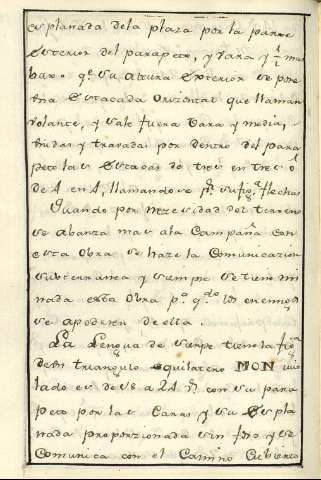 esplanada dela plaza por la parte
exterior del parapeto, y vara y ½ mas
baxo qe. su altura exterior se pone
una Estacada Orizontal que llaman
volante, y sale fuera vara y media,
unidas y travadas por dentro del para
peto las Estacas de tres en tres ó
de 4 en 4, llamandose pr. su figa. flechas
Quando por nezesidad del terreno
se abanza mas ala Campaña con
esta Obra se haze la Comunicazion
subterranea y siempre se tiene mi
nada esta Obra pa. qdo. los enemigos
se apoderen de ella.
La Lengua de sierpe tiene la figa.
de un triangulo equilatero MON cuio
lado es de 18 a 24 con su para
peto por las Caras y su Espla
nada proporzionada sin foso y se
Comunica con el Camino Cubierto